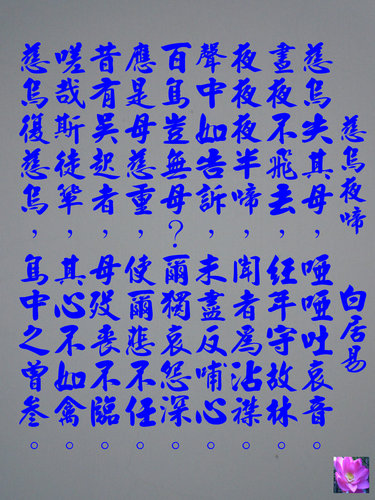 慈烏夜啼 白居易
慈烏失其母，啞啞吐哀音。
晝夜不飛去，經年守故林。
夜夜夜半啼，聞者為沾襟。
聲中如告訴，未盡反哺心。
百鳥豈無母？爾獨哀怨深。
應是母慈重，使爾悲不任。
昔有吳起者，母歿喪不臨。
嗟哉斯徒輩，其心不如禽。
慈烏復慈烏，鳥中之曾參。